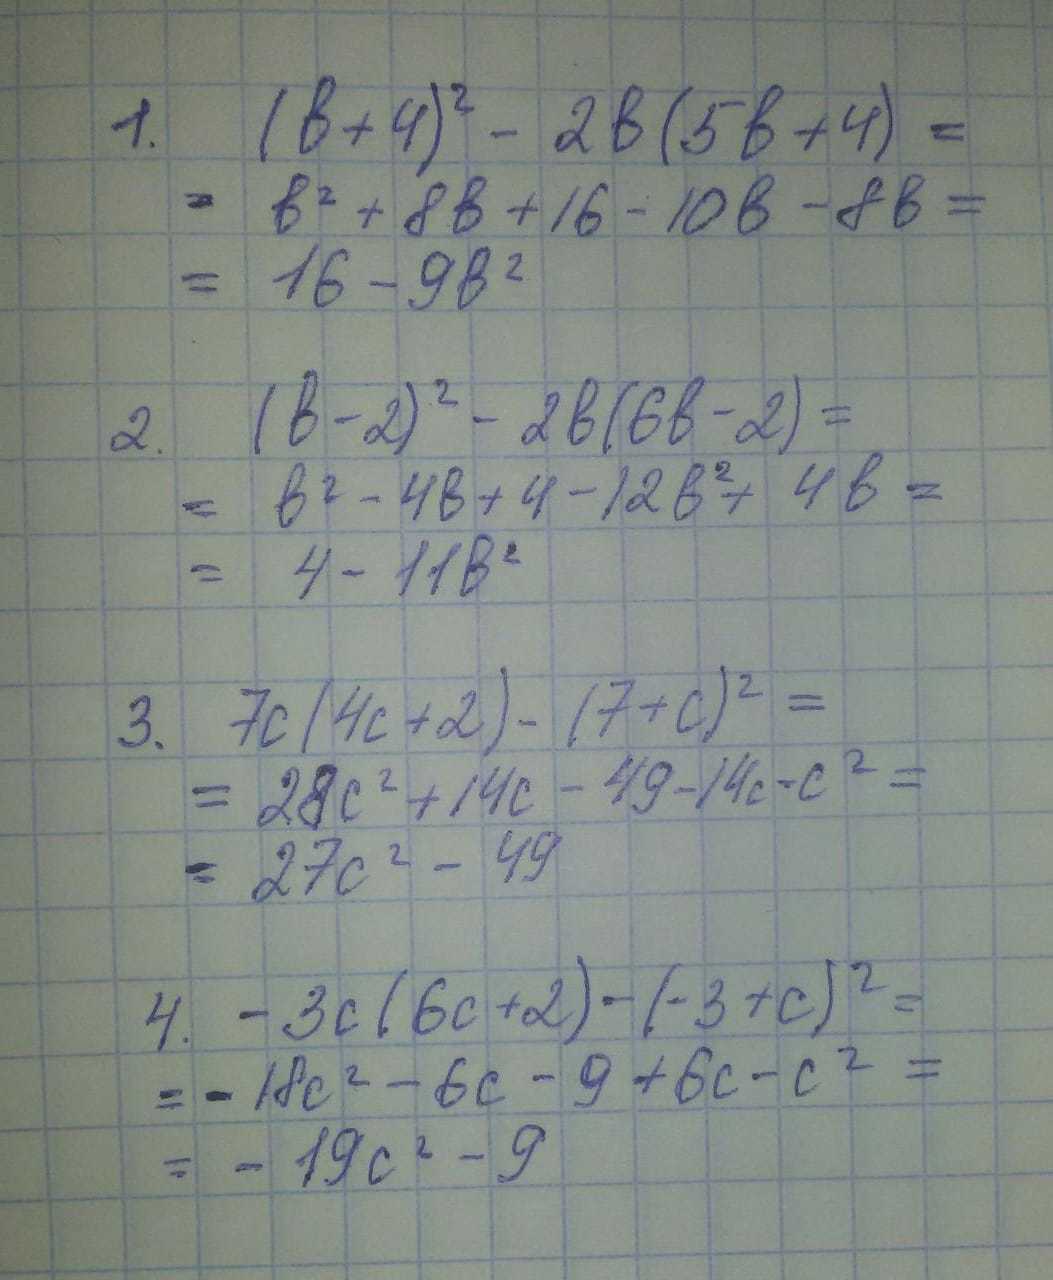 1. (в+4)² - 2в(5в+4) =
= в² + 8в + 16 - 10в - 8в =
= 16 - 9в²
2. (в-2)² - 2в(6в-2) =
= в² - 4в + 4 - 12в² + 4в =
= 4 - 11в²
3. 7с(4с+2) - (7+с)² =
= 28с² + 14с - 49 - 14с - с² =
= 27с² - 49
4. -3с(6с+2) - (-3+с)² =
= -18с² - 6с - 9 + 6с - с² =
= -19с² - 9